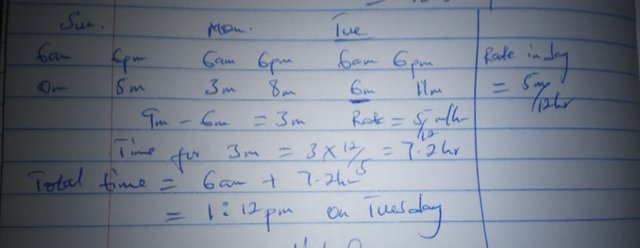 Sun. Mon. Tue
6am 6pm 6am 6pm 6am 6pm Rate in day
0m 5m 3m 8m 6m 11m = 5m/12hr
9m - 6m = 3m Rate = 5/12 m/hr
Time for 3m = 3 x 12/5 = 7.2hr
Total time = 6am + 7.2hrs
= 1:12pm on Tuesday